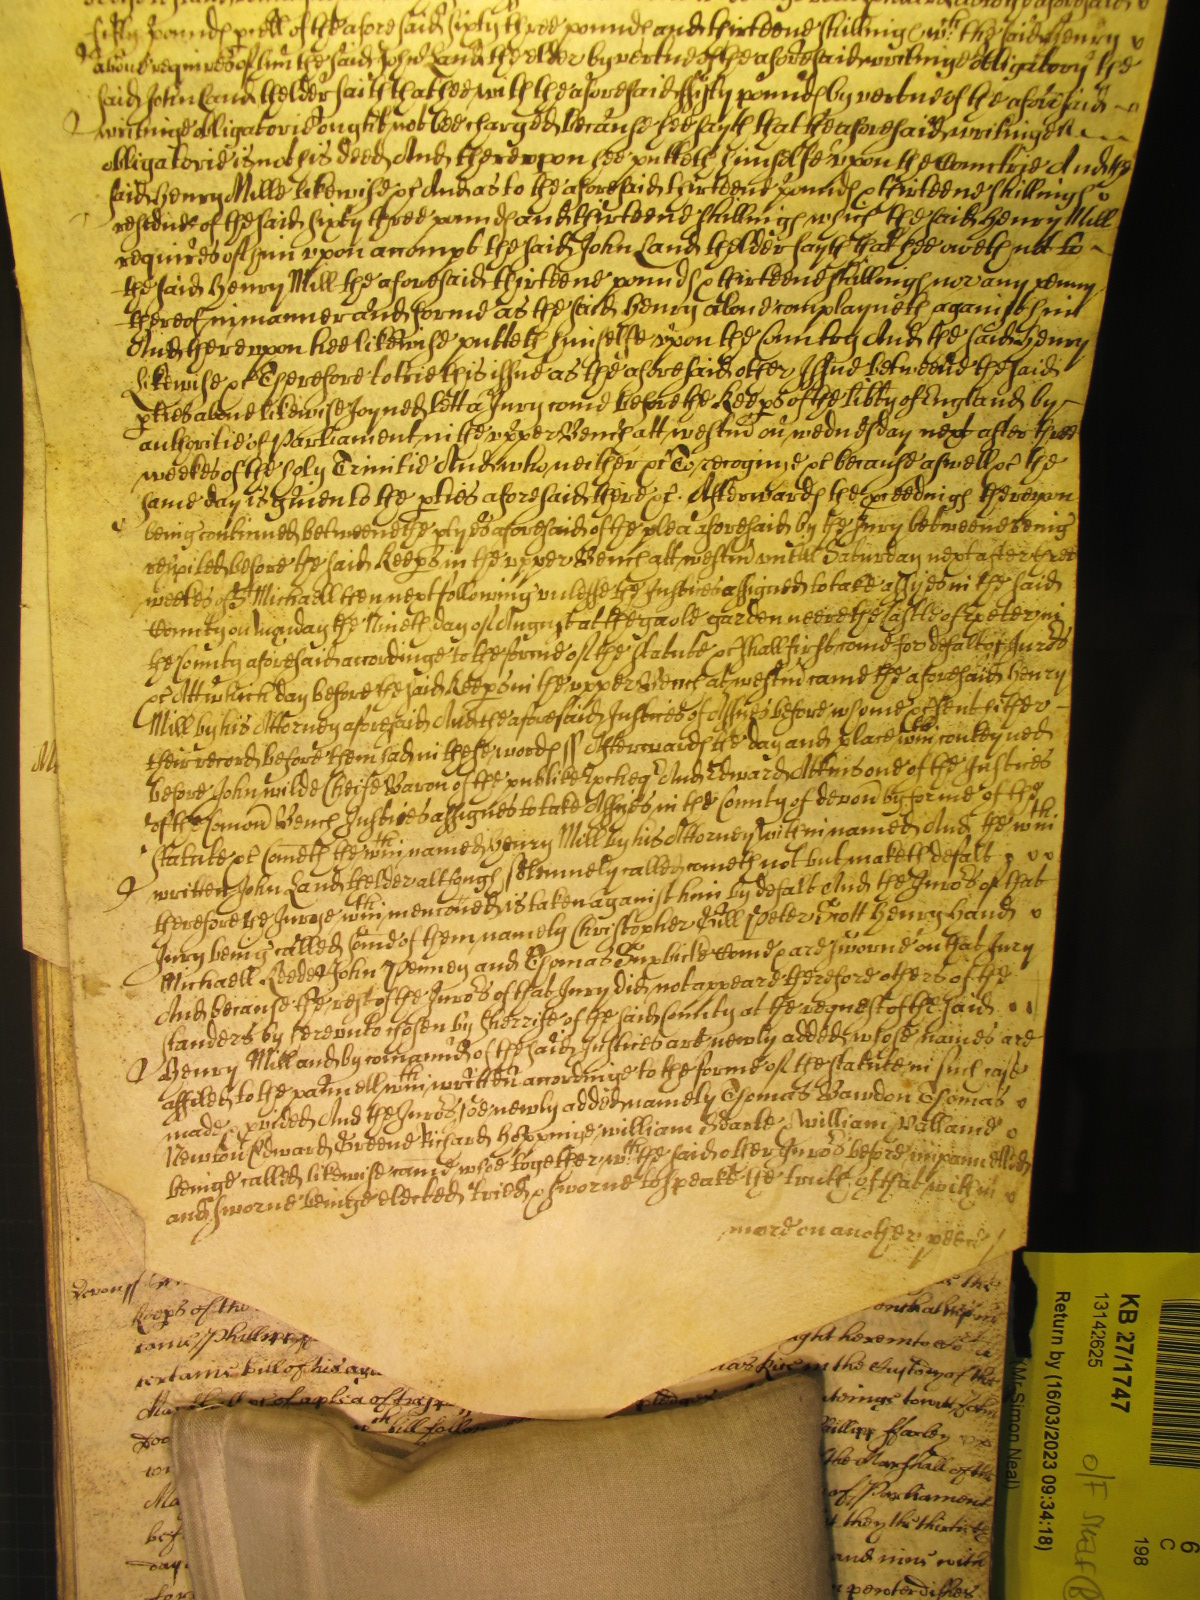 fifty pounds pcell of the aforesaid sixty three pounds and thirteene shillings wch the said Henry
above requires of him the said John Land the elder by vertue of the aforesaid writinge obligatory the
said John Land thelder saith that hee with the aforesaid ffifty pounds by vertue of the aforesaid
writinge obligatorie ought not bee charged because hee sayth that the aforesaid writinge
obligatorie is not his deed And therevpon hee putteth himselfe vpon the Countrie And the
said Henry Mille likewise &c And as to the aforesaid thirteene pounds & thirteene shillings
residue of the said sixty three pounds and thirteene shillings which the said Henry Mill
requires of him vpon accompt the said John Land thelder sayth that hee oweth not to
the said Henry Mill the aforesaid thirteene pounds & thirteene shillings nor any penny
thereof in manner and forme as the said Henry above complayneth against him
And therevpon hee likewise putteth himselfe vpon the Country And the said Henry
likewise &c Therefore to trie this issue as the aforesaid other Issue betweene the said
pties above likewise Joyned Lett a Jury come before the Keeps of the libty of England by
authoritie of Parliament in the vpper Bench att westm on wednesday next after three
weekes of the holy Trinitie And who neither &c To recognize &c because aswell &c the
same day is given to the pties aforesaid there &c. Afterwards the pceedings therevpon
being continued betweene the ptyes aforesaid of the plea aforesaid by the Jury betweene being
respited before the said Keeps in the vpper Bench att westm vntill Saturday next after three
weekes of St Michaell then next following vnlesse the Justices assigned to take assizes in the said
County on Munday the Nineth day of August at the gaole garden neere the Castle of Exeter in
the County aforesaid accordinge to the forme of the statute &c shall first come for defalt of Jurors
&c Att which day before the said Keeps in the vpper Bench at westm came the aforesaid Henry
Mill by his Attorney aforesaid And the aforesaid Justices of Assises before whome &c sent hither
their record before them had in these words ss Afterwards the day and place wthin conteyned
before John Wilde Cheife Baron of the publike Exchequer And Edward Atkins one of the Justices
of the Comon Bench Justices assigned to take Assises in the County of devon by forme of the
statute &c Cometh the wthin named Henry Mill by his Attorney within named And the wthin
written John Land thelder although solemnely called cometh not but maketh defalt
therefore the Jurye wthin menconed is taken against him by defalt And the Jurors of that
Jury being called some of them namely Christopher Gill Peter Scott Henry Hand
Michaell Reeder John Penney and Thomas come & are sworne on that Jury
And because the rest of the Jurors of that Jury did not appeare therefore others of the
standers by herevnto chosen by Sherrife of the said County at the request of the said
Henry Mill and by comannd of the said Justices are newly added whose names are
affiled to the pannell wthin written accordinge to the forme of the statute in such case
made & pvided And the Jurors soe newly added namely Thomas Bawdon Thomas
Newton Edward Greene Richard Hoppinge William Searle & William Pallame
beinge called likewise came whoe together wth the said other Jurors before impannelled
and sworne beinge elected tried & sworne to speake the truth of that within
more on another peece
Devon ss
Keeps of the
came Phillipp
certaine bill of his
of a plea of
bill follow
ought herein to
in the Custody of the
Phillipp ffarley
the Marshall of the
of Parliament
they the thirtieth
day
and nine with
KB 27/1747
13142625
Return by (16/03/2023 09:34:18)
(Mr Simon Neal)
198
C
6